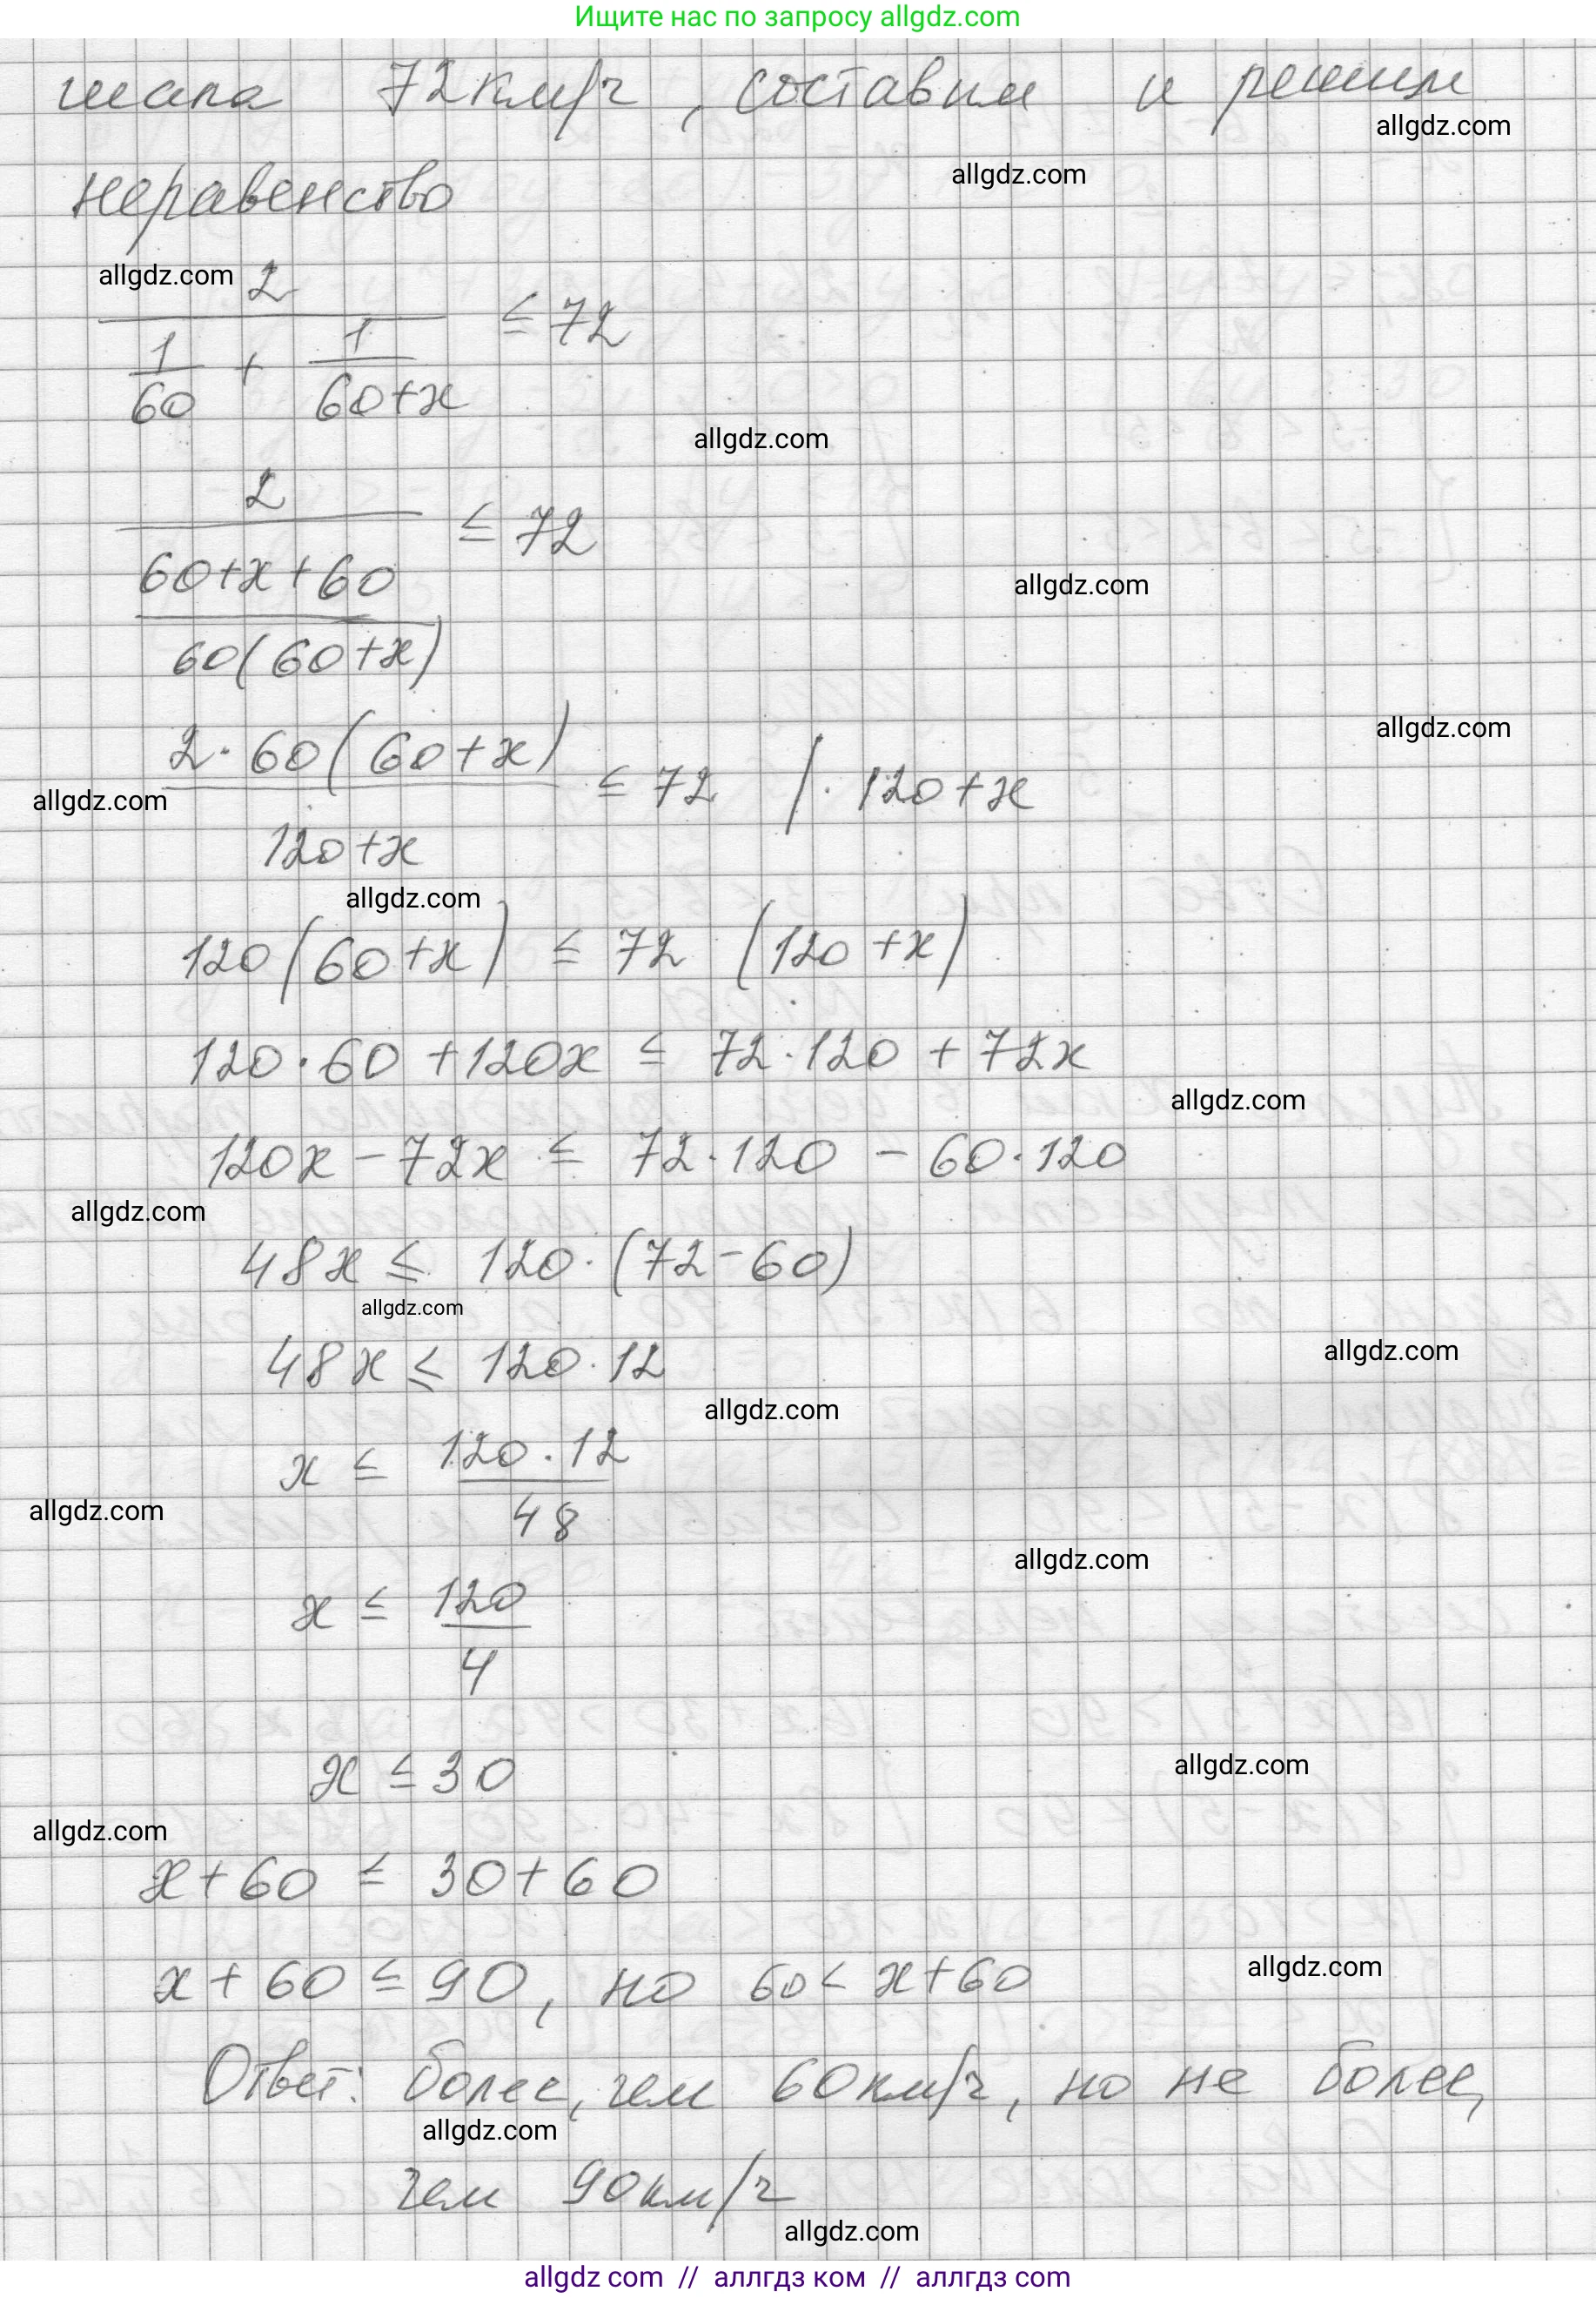 Ищите нас по запросу allgdz.com
шала 72 км/ч, составим и решим
allgdz.com
allgdz.com
неравенство
allgdz.com
2 / (1/60 + 1/(60+x)) ≤ 72
allgdz.com
2 / ((60+x+60) / (60(60+x))) ≤ 72
allgdz.com
allgdz.com
2·60(60+x) / (120+x) ≤ 72 | · 120+x
allgdz.com
allgdz.com
120(60+x) ≤ 72 (120+x)
120·60+120x ≤ 72·120+72x
allgdz.com
120x-72x ≤ 72·120-60·120
allgdz.com
48x ≤ 120·(72-60)
allgdz.com
48x ≤ 120·12
allgdz.com
allgdz.com
x ≤ 120·12 / 48
allgdz.com
allgdz.com
x ≤ 120 / 4
x ≤ 30
allgdz.com
allgdz.com
x+60 ≤ 30+60
x+60 ≤ 90, но 60 < x+60
allgdz.com
Ответ: более, чем 60 км/ч, но не более,
allgdz.com
чем 90 км/ч
allgdz.com
allgdz com // аллгдз ком // allgdz com